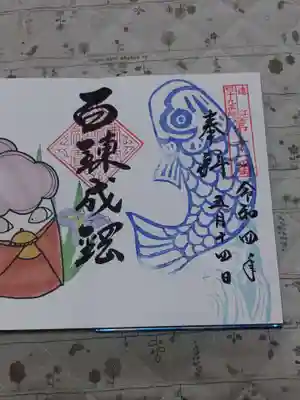 奉拝
令和四年
五月十四日
百錬成鋼